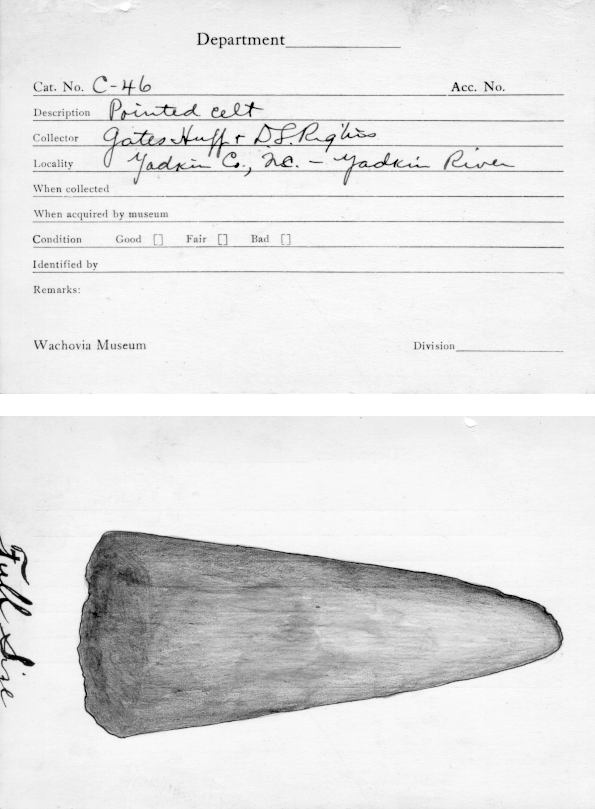 Department
Cat. No. C-46 Acc. No.
Description Pointed celt
Collector Gates Huff + D.L.
Locality Yadkin Co., N.C. – Yadkin River
When collected
When acquired by museum
Condition Good [] Fair [] Bad []
Identified by
Remarks:
Wachovia Museum Division
Full Size